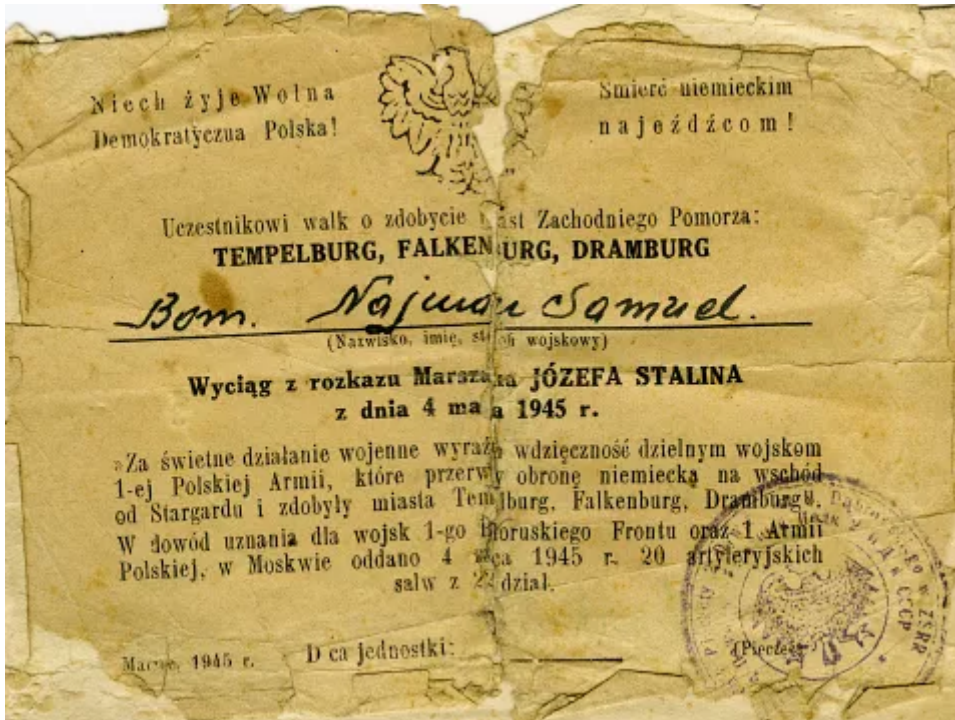 Niech żyje Wolna
Demokratyczua Polska!
Śmierć niemieckim
najeźdźcom!
Uczestnikowi walk o zdobycie miast Zachodniego Pomorza:
TEMPELBURG, FALKENBURG, DRAMBURG
Bom. Najman Samuel.
(Nazwisko, imię, stopień wojskowy)
Wyciąg z rozkazu Marszałka JÓZEFA STALINA
z dnia 4 marca 1945 r.
»Za świetne działanie wojenne wyrażam wdzięczność dzielnym wojskom
1-ej Polskiej Armii, które przerwały obronę niemiecką na wschód
od Stargardu i zdobyły miasta Tempelburg, Falkenburg, Dramburg«.
W dowód uznania dla wojsk 1-go Białoruskiego Frontu oraz 1 Armii
Polskiej, w Moskwie oddano 4 marca 1945 r. 20 artyleryjskich
salw z dział.
Marzec, 1945 r.
D ca jednostki:
(Pieczęć)
w ZSRR
СССР